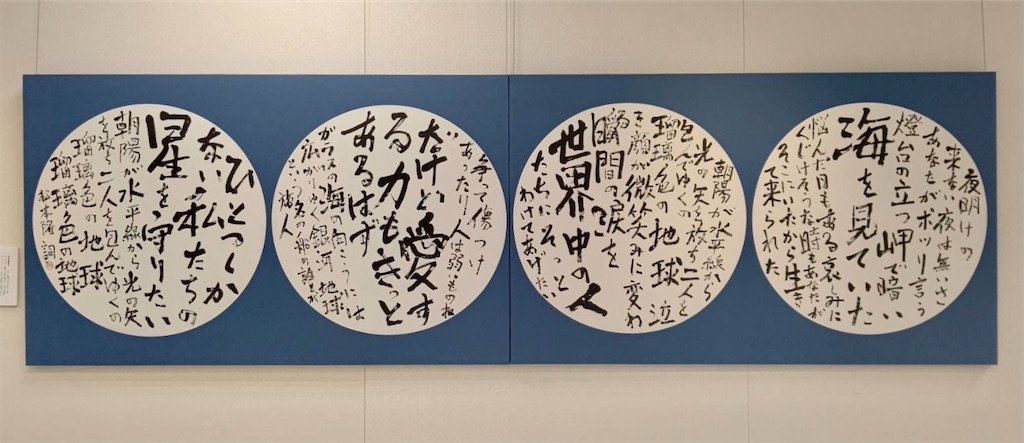 夜明けの
来ない夜は無いさ
あなたがポツリ言う
燈台の立つ岬で暗い
海を見ていた
悩んだ日もある哀しみに
くじけそうな時もあなたが
そこにいたから生き
て来られた
朝陽が水平線から
光の矢を放ち二人を
包んでゆくの
瑠璃色の地球 泣
き顔が微笑みに変わ
る
瞬間の涙を
世界中の人
たちにそっと
わけてあげたい
争って傷つけ
あったり人は弱いものね
だけど愛す
る力もきっと
あるはず
ガラスの海の向こうには
広がりゆく銀河 地球
という名の船の誰もが
旅人
ひとつしか
ない私たちの
星を守りたい
朝陽が水平線から光の矢
を放ち二人を包んでゆくの
瑠璃色の地球
瑠璃色の地球
松本隆 詞